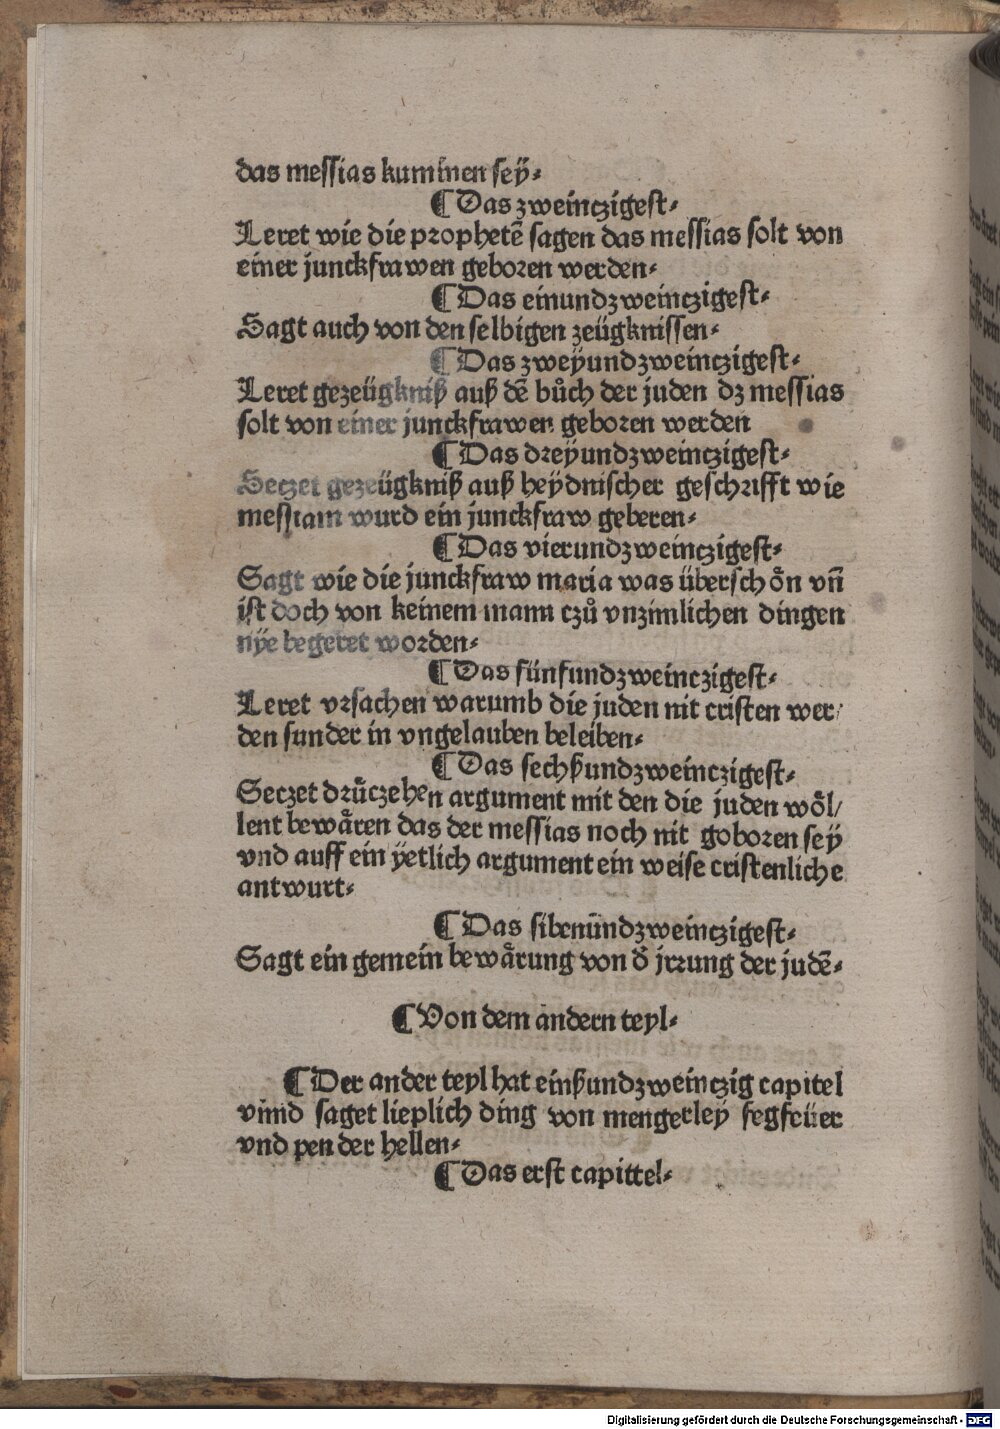 das messias kummen seÿ⸗
¶ Das zweinczigest⸗
Leret wie die prophetē sagen das messias solt von
einer junckfrawen geboren werden⸗
¶ Das einundzweinczigest⸗
Sagt auch von den selbigen zeügknissen⸗
¶ Das zweÿundzweinczigest⸗
Leret gezeügkniß auß dē bůch der juden dz messias
solt von einer junckfrawen geboren werden
¶ Das dreÿundzweinczigest⸗
Seczet gezeügkniß auß heÿdnischer geschrifft wie
messiam wurd ein junckfraw geberen⸗
¶ Das vierundzweinczigest⸗
Sagt wie die junckfraw maria was überschoͤn vn̄
ist doch von keinem mann czů vnzimlichen dingen
nÿe begeret worden⸗
¶ Das fünfundzweinczigest⸗
Leret vrsachen warumb die juden nit cristen wer/
den sunder in vngelauben beleiben⸗
¶ Das sechßundzweinczigest⸗
Seczet drůczehen argument mit den die juden woͤl/
lent bewaͤren das der messias noch nit goboren seÿ
vnd auff ein ÿetlich argument ein weise cristenliche
antwurt⸗
¶ Das sibenūndzweinczigest⸗
Sagt ein gemein bewaͤrung von d̕ jrrung der judē⸗
¶ Von dem andern teyl⸗
¶ Der ander teyl hat einßundzweinczig capitel
vnnd saget lieplich ding von mengerleÿ fegfeüer
vnd pen der hellen⸗
¶ Das erst capittel⸗
Digitalisierung gefördert durch die Deutsche Forschungsgemeinschaft - DFG